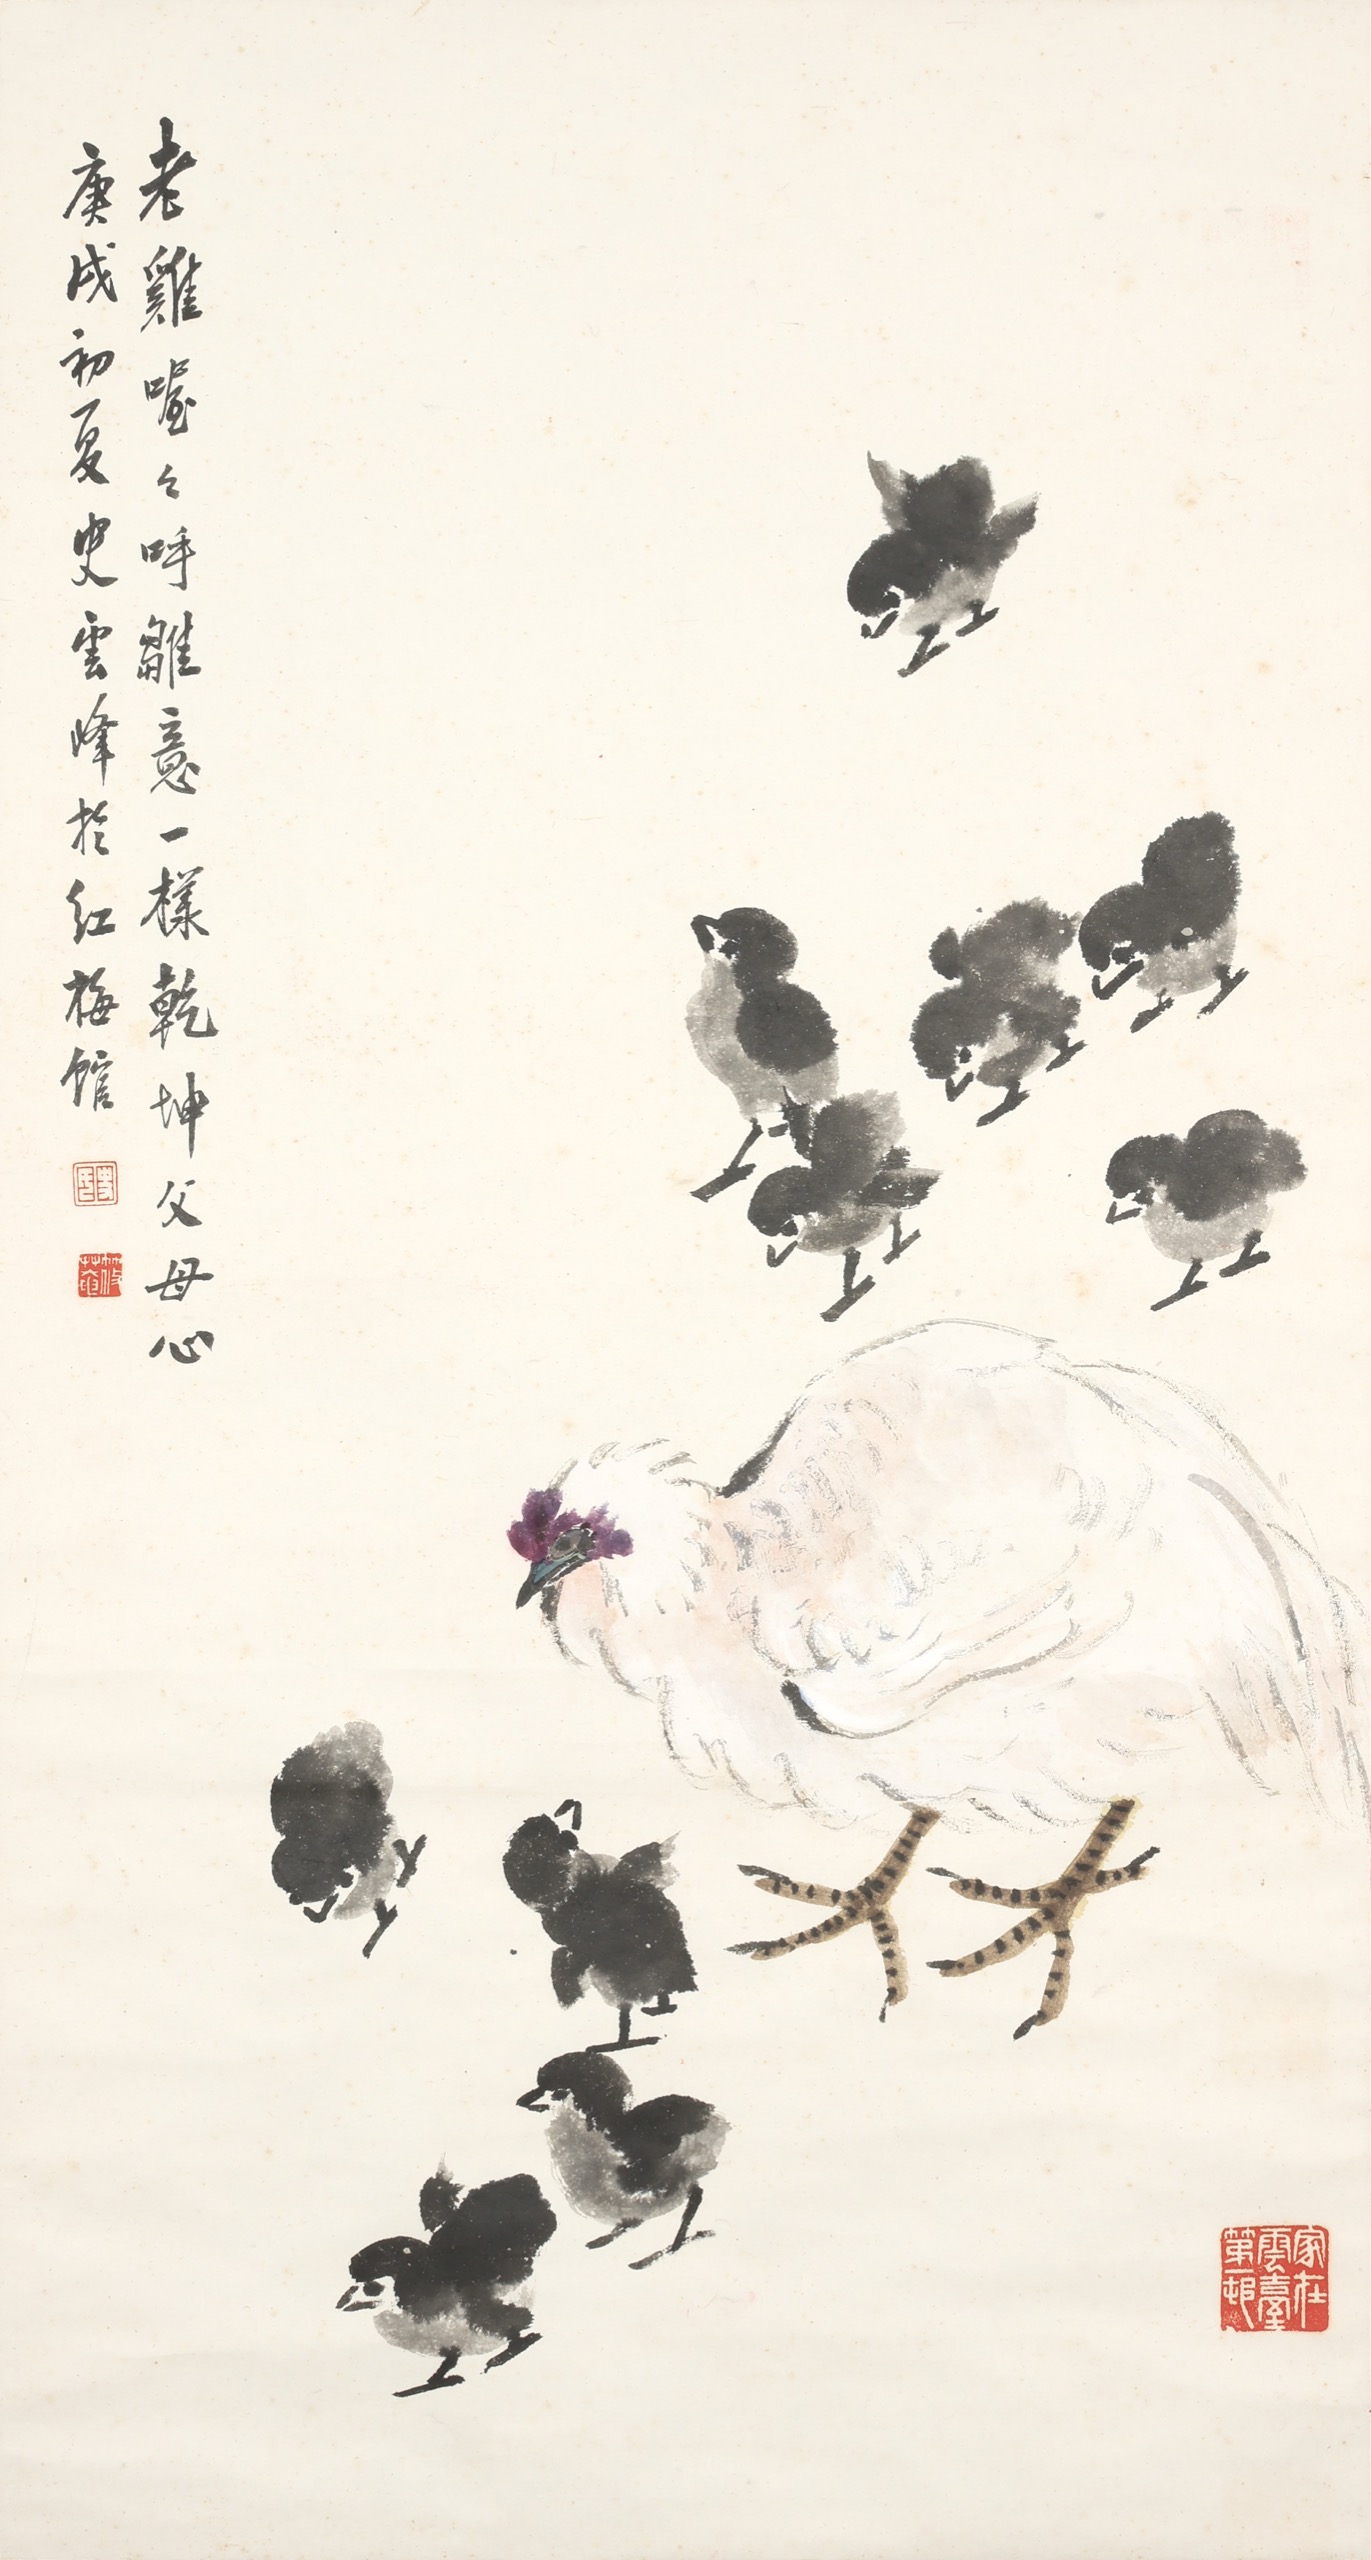 老雞喔々呼雛意一樣乾坤父母心
庚戌初夏史雲峰於紅梅館
家在
雲臺
第一邨